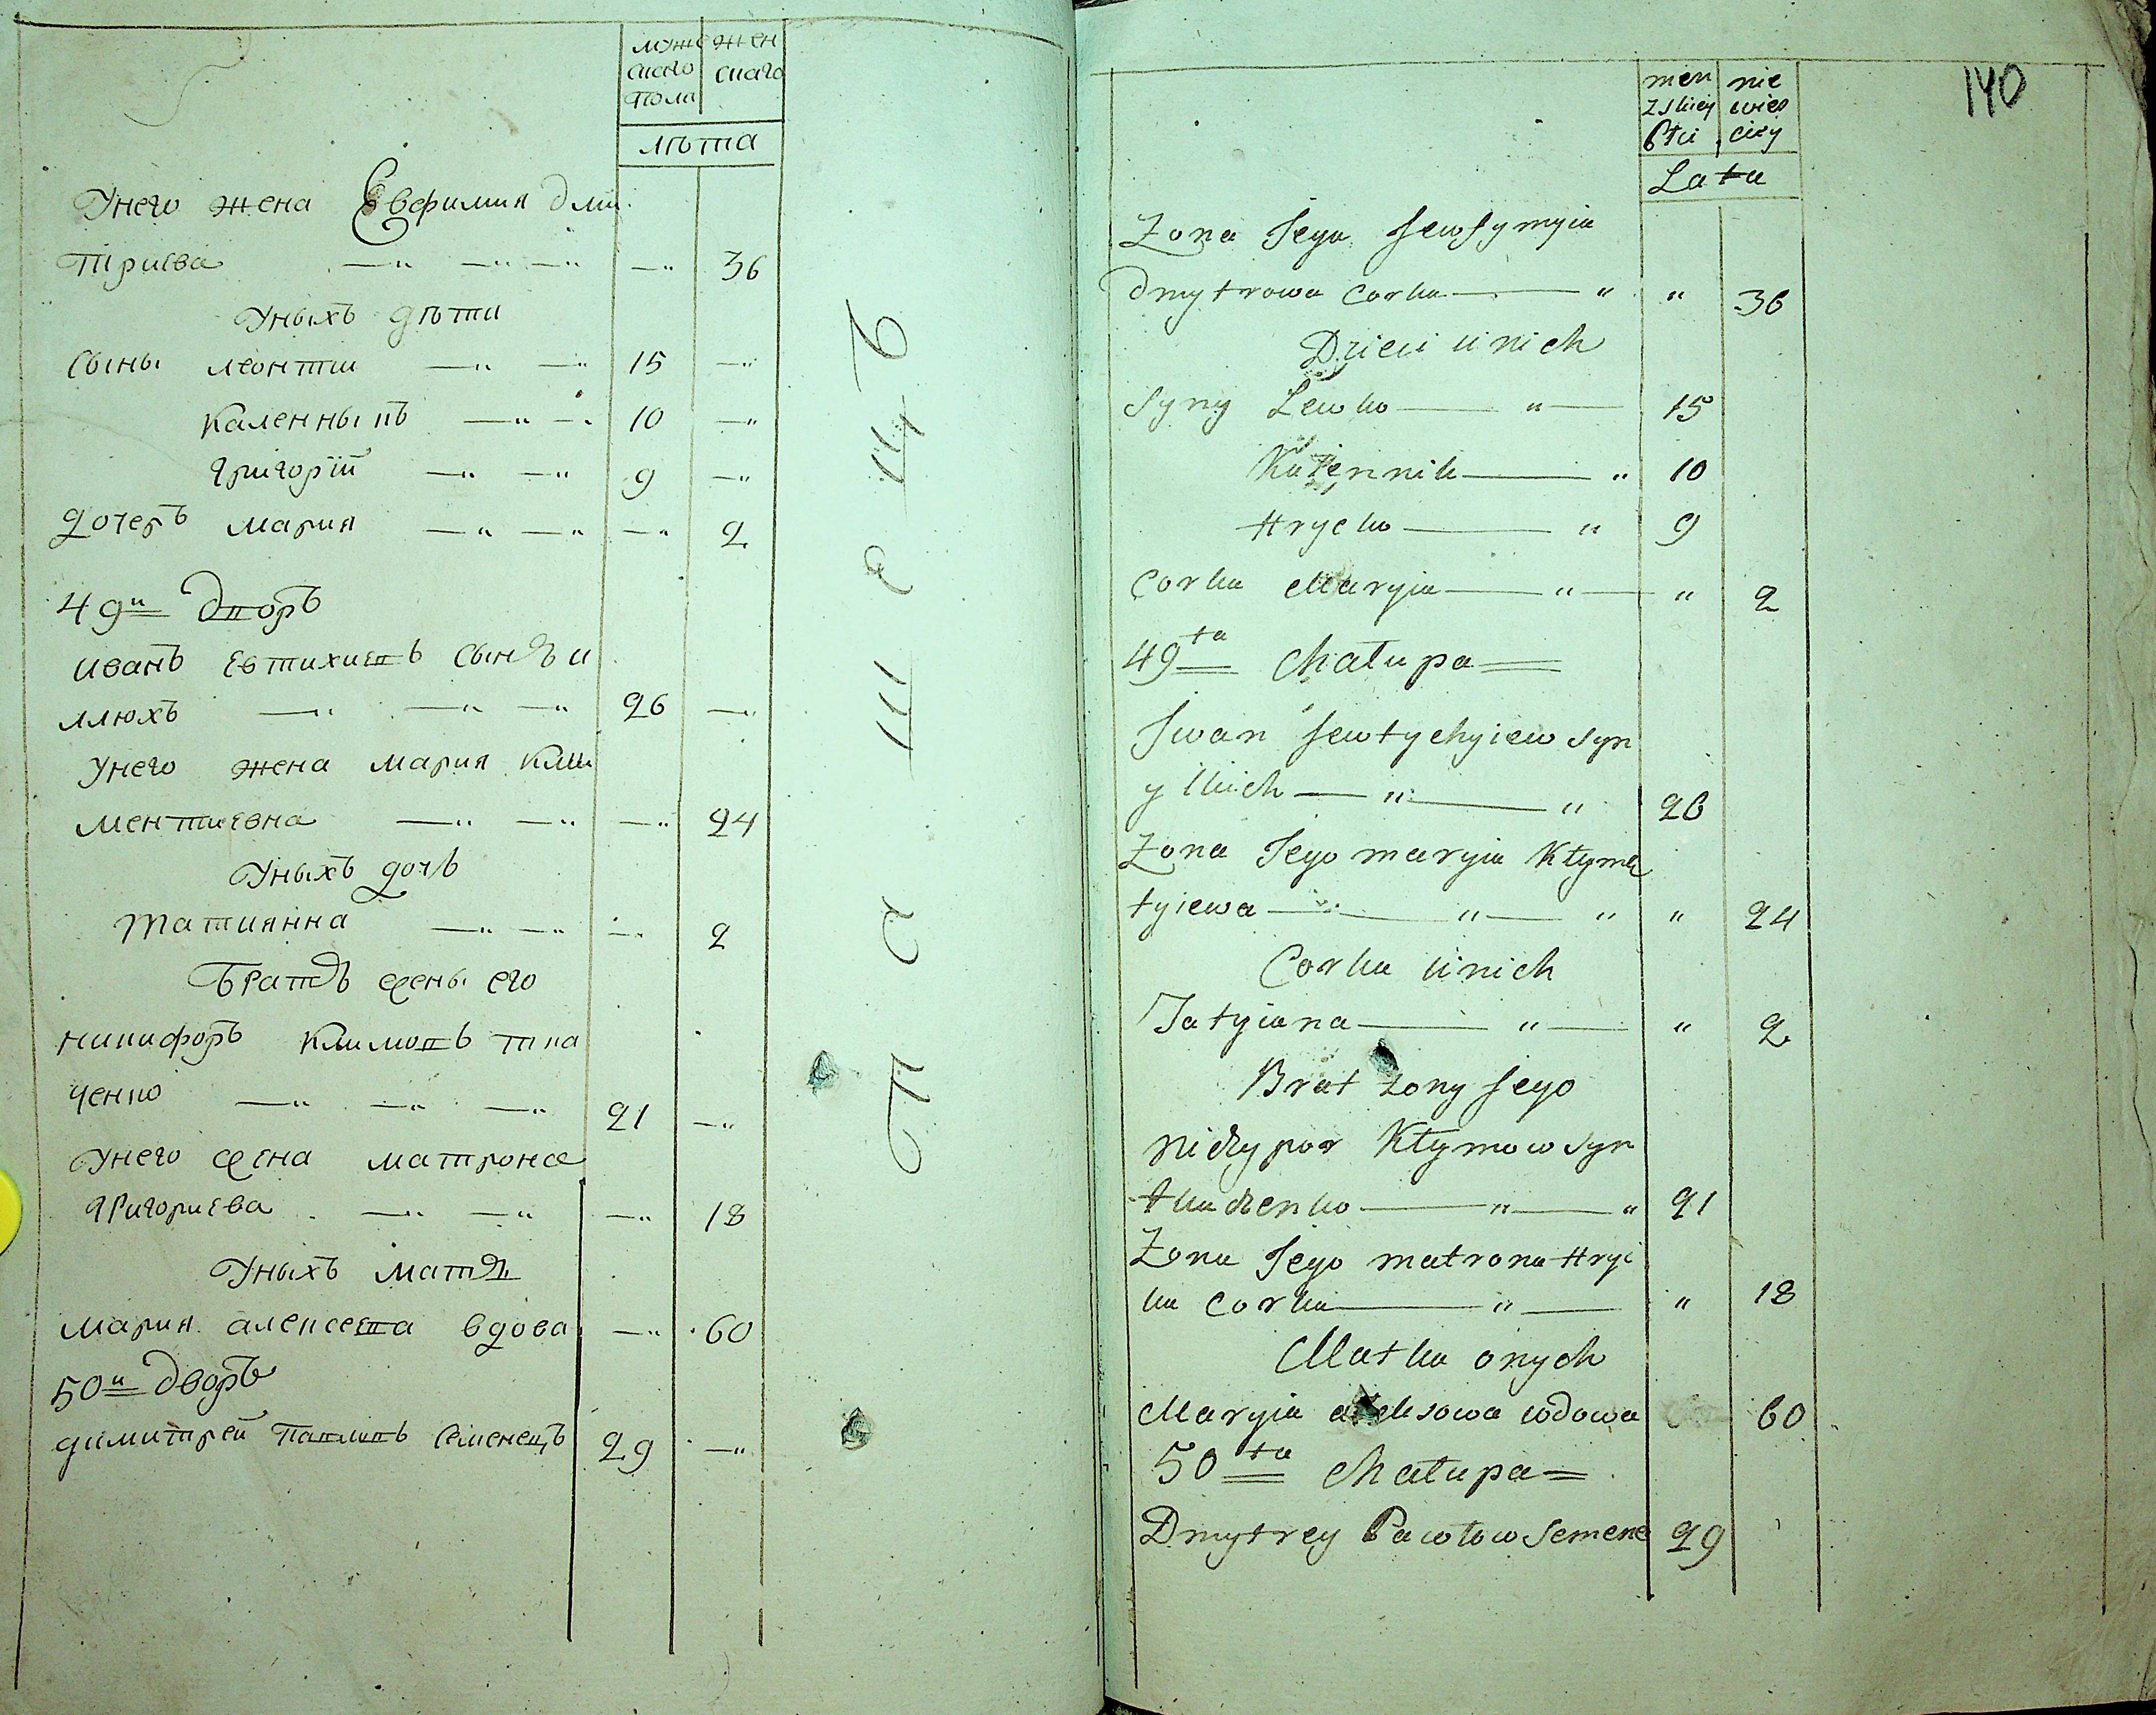 муже жен
скаго скаго
пола
лѣта
Унего жена Евфимия Дми
триева 36
Уныхъ дѣти
сыны леонтии 15
Каленныкъ 10
Григорій 9
дочеръ мария 2
49й Дворъ
иванъ Евтихиевъ сынъ и
ллюхъ 26
Унего жена мария Кли
ментиевна 24
Уныхъ дочъ
татиянна 2
Братъ жены его
никифоръ Климовъ тка
ченко 21
Унего жена матрона
григориева 18
Уныхъ мать
мария алексеева вдова 60
50й дворъ
димитрей Павловъ Семенецъ 29
140
men nie
zskiey wies
Płci ciey
Lata
Zona Jego Jewfymyia
Dmytrowa Corka " " 36
Dzieci u nich
Syny Lewko " 15
Kałennik " 10
Hryćko " 9
Corka Maryia " " 2
49ta Chałupa
Jwan Jewtychyiew Syn
ylluch " " 26
Zona Jego maryia Kłyme
tyiewa " " " 24
Corka u nich
Tatyiana " " 2
Brat zony Jego
Niczypor Kłymow Syn
tkaczenko " " 21
Zona Jego matrona Hryc
ka Corka " " 18
Matka onych
Maryia wdowa 60
50ta Chałupa
Dmytrey Pawłow Semene 29